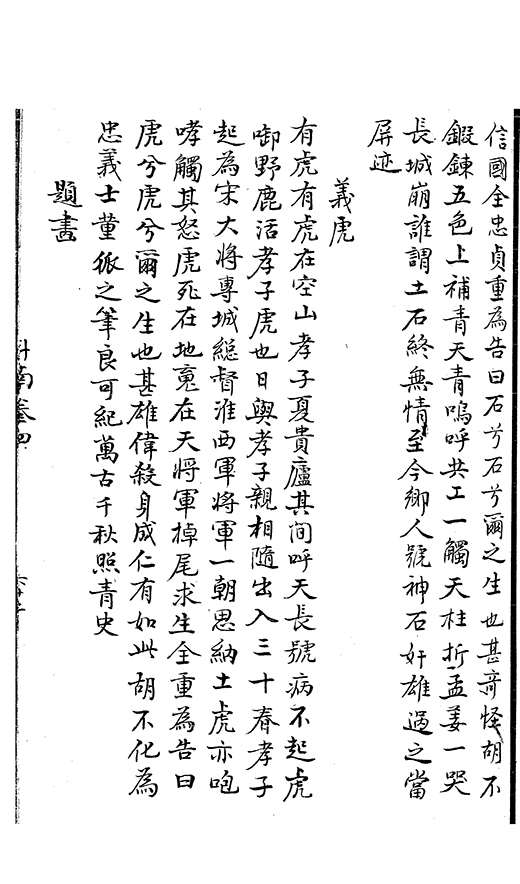 信國全忠貞重為告曰石兮石兮爾之生也甚奇怪胡不
鍛鍊五色上補青天青嗚呼共工一觸天柱折孟姜一哭
長城崩誰謂土石終無情至今鄉人號神石奸雄過之當
屏迹
義虎
有虎有虎在空山孝子夏貴廬其間呼天長號病不起虎
啣野鹿活孝子虎也日與孝子親相隨出入三十春孝子
起為宋大將專城總督淮西軍將軍一朝思納土虎亦咆
哮觸其怒虎死在地䰟在天將軍掉尾求生全重為告曰
虎兮虎兮爾之生也甚雄偉殺身成仁有如此胡不化為
忠義士董狐之筆良可紀萬古千秋照青史
題畵
南卷四